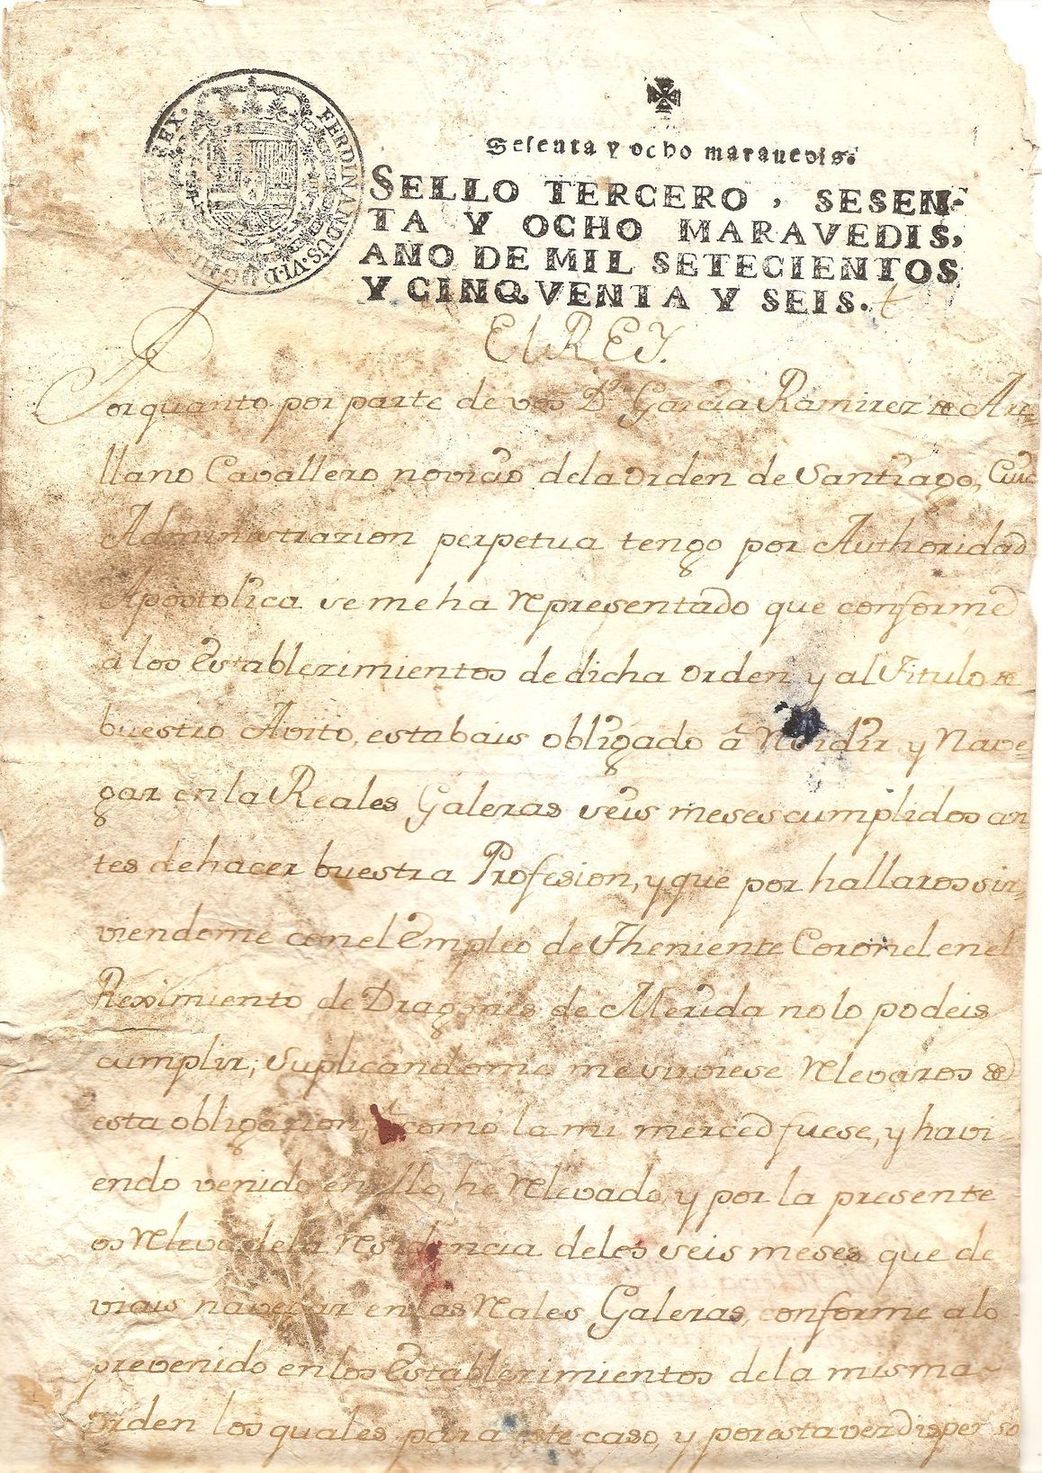 FERDINANDUS.VI.D.G. REX.
Sesenta y ocho maravedis.
SELLO TERCERO, SESEN-
TA Y OCHO MARAVEDIS,
AÑO DE MIL SETECIENTOS
Y CINQVENTA Y SEIS.
El REY.
Por quanto por parte de vos Dn. Garcia Ramirez de Are=
llano Cavallero novicio dela orden de Santiago, Cuia
Administrazion perpetua tengo por Authoridad
Apostolica se me ha representado que conforme
a los establezimientos de dicha orden y al Titulo de
buestro Avito, estabais obligado â residir y Nave=
gar en la Reales Galeras seis meses cumplidos an
tes de hacer buestra Profesion, y que por hallaros sir=
viendome con el Empleo de Theniente Coronel en el
Reximiento de Dragones de Merida no lo podeis
cumplir; Suplicandome me sirviese relevaros de
esta obligazion, ô como la mi merced fuese, y havi-
endo venido en ello, he relevado, y por la presente
os relevo dela residencia delos seis meses que de
viais navegar en las reales Galeras, conforme a lo
prevenido en los Establezimientos dela misma
orden los quales para este caso, y por esta vez dispenso